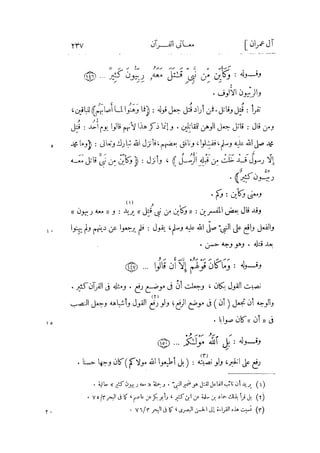 آل عمران ]
معانى القرآن
٢٣٧
وقوله : وَكَأَيِّن مِّن نَّبِيٍّ قَٰتَلَ مَعَهُۥ رِبِّيُّونَ كَثِيرٌ ... (١٤٦)
والربّيون الألوف .
تقرأ : قُتِل وقاتل . فمن أراد قُتِل جعل قوله : ﴿فَمَا وَهَنُوا لِمَا أَصَابَهُمْ﴾ للباقين ،
ومن قال : قاتل جعل الوهن للمقاتلين . و إنما ذكر هذا لأنهم قالوا يوم أُحُد : قُتِل
٥
محمد صلى الله عليه وسلم ، ففشِلوا ، ونافق بعضهم ، فأنزل الله تبارك وتعالى : ﴿وَمَا مُحَمَّدٌ
إِلَّا رَسُولٌ قَدْ خَلَتْ مِن قَبْلِهِ الرُّسُلُ﴾ ، وأنزل : ﴿وَكَأَيِّن مِّن نَّبِيٍّ قَاتَلَ مَعَهُ
رِبِّيُّونَ كَثِيرٌ﴾ .
ومعنى وكأين : وكم .
وقد قال بعض المفسرين : « وكأين من نبى قُتِل » يريد : و « معه ربيون »
(١)
والفعل واقع على النبىّ صلّى الله عليه وسلم ، يقول : فلم يرجعوا عن دينهم ولم يهنوا
١٠
بعد قتله . وهو وجه حسن .
وقوله : وَمَا كَانَ قَوْلَهُمْ إِلَّآ أَن قَالُوا ... (١٤٧)
نصبت القول بكان ، وجعلت أنْ فى موضع رفع . ومثله فى القرآن كثير .
والوجه أن تجعل ( أن ) فى موضع الرفع ، ولو رُفع القول وأشباهه وجعل النصب
فى « أن » كان صوابا .
١٥
وقوله : بَلِ ٱللَّهُ مَوْلَىٰكُمْ ... (١٥٠)
رفع على الخبر ، ولو نصبتَه : ( بل أطيعوا الله مولاكم ) كان وجها حسنا .
(٣)
(١) يريد أن نائب الفاعل لقتل هو ضمير النبىّ . و جملة « معه ربيون كثير » حالية .
(٣) نسبت هذه القراءة إلى الحسن البصرى ، كما فى البحر ٣/٧٦ .
٢٠